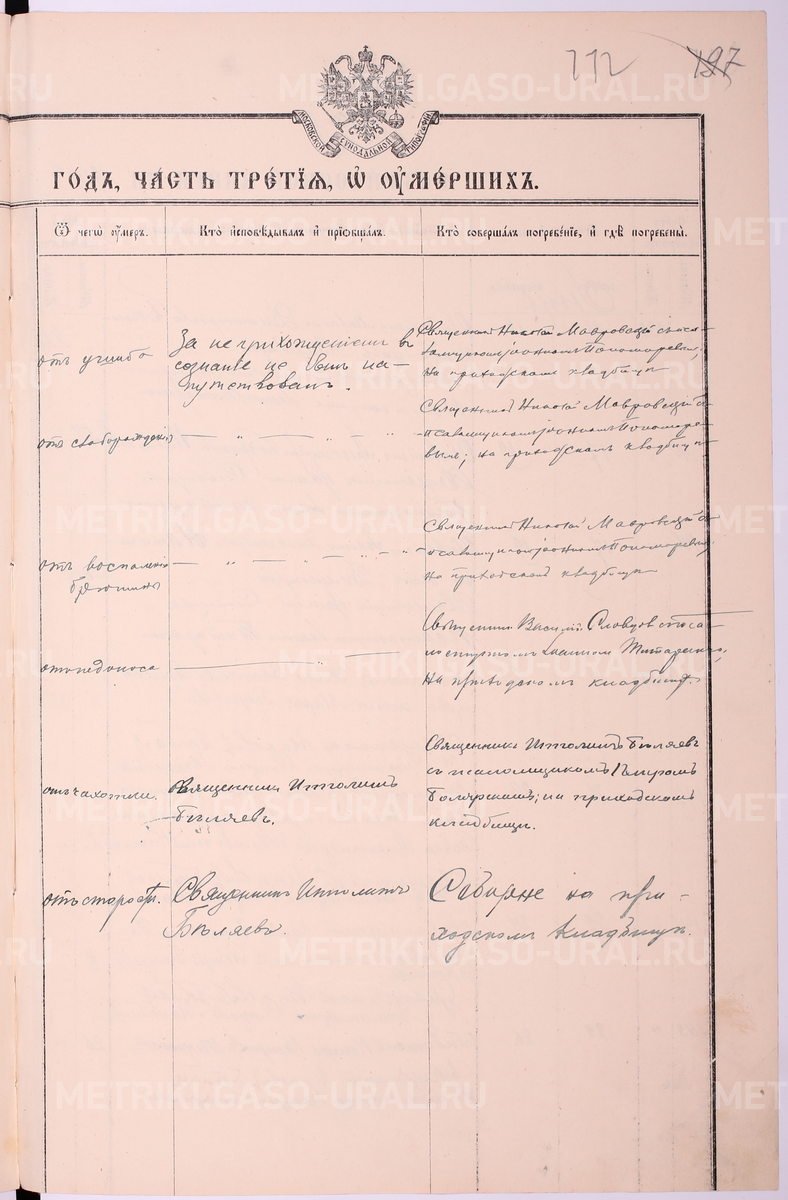 112 197
МОСКОВСКОЙ СѴНОДАЛЬНОЙ ТИПОГРАФІИ
ГОДЪ, ЧАСТЬ ТРЕТІЯ, Ѡ ОУМЕРШИХЪ.
Ѿ чегѡ оумеръ.
Кто исповѣдывалъ и пріѡбщалъ.
Кто совершалъ погребеніе, и гдѣ погребены.
отъ ушиба
За не прихожденіемъ въ
сознаніе не былъ на-
путствованъ.
Священникъ Николай Мавровскій съ пса-
ломщикомъ Пономаревымъ,
на приходскомъ кладбищѣ
отъ слаборожденія
— " — " — " —
Священникъ Николай Мавровскій съ
псаломщикомъ Пономаре-
вымъ; на приходскомъ кладбищѣ
отъ воспаленія
брюшины
— " — " — " — " —
Священникъ Николай Мавровскій съ
псаломщикомъ Пономаревымъ;
на приходскомъ кладбищѣ
отъ поноса
— " —
Священникъ Василій Словцов съ пса-
ломщикомъ Іоанномъ
на приходскомъ кладбищѣ.
отъ чахотки.
Священникъ Ипполитъ
Бѣляевъ.
Священникъ Ипполитъ Бѣляевъ
съ псаломщикомъ Петромъ
на приходскомъ
кладбищѣ.
отъ старости.
Священникъ Ипполитъ
Бѣляевъ.
на при-
ходскомъ кладбищѣ.
METRIKI.GASO-URAL.RU